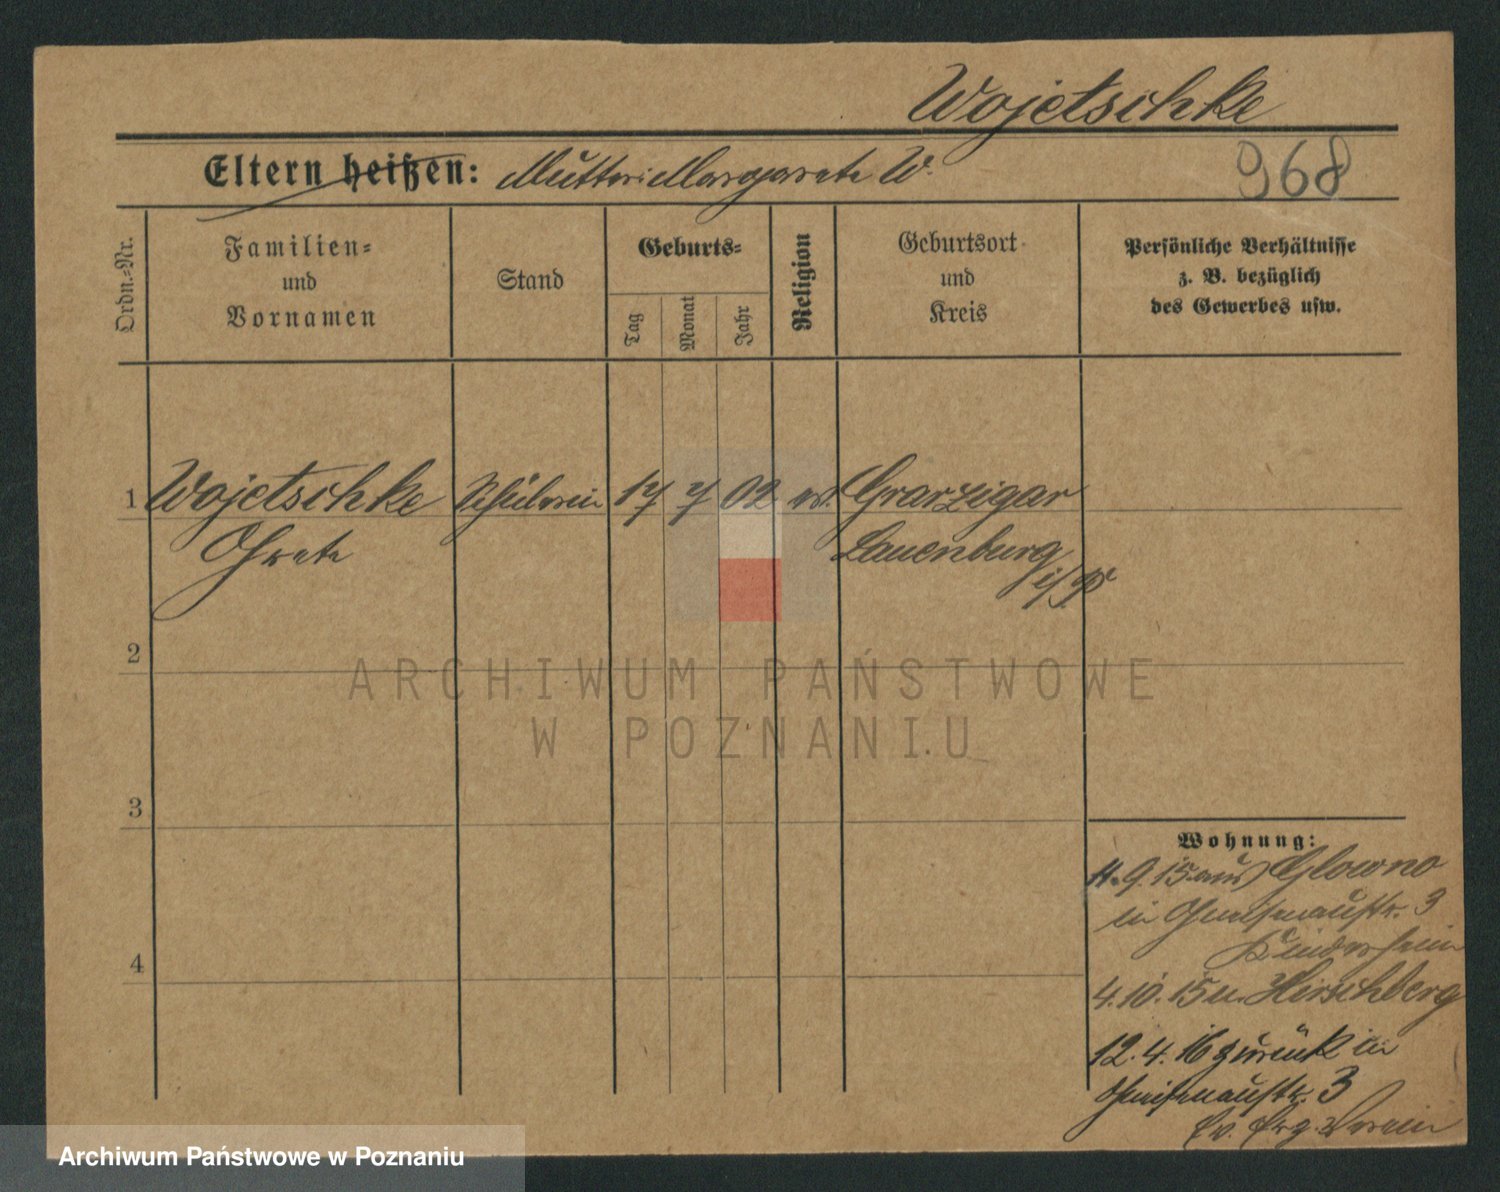 Wojetschke
Eltern heißen: Mutter: Margarete W.
968
Ordn.-Nr.
Familien-
und
Vornamen
Stand
Geburts-
Tag
Monat
Jahr
Religion
Geburtsort
und
Kreis
Persönliche Verhältnisse
z. B. bezüglich
des Gewerbes usw.
1 Wojetschke Schülerin 17 7 02 ev. Grarzigar
Grete Lauenburg
i/P
2
ARCHIWUM PAŃSTWOWE
W POZNANIU
3
Wohnung:
11.9.15 aus Glowno
in Gneisenaustr. 3
Kinderheim
4
4.10.15 n. Hirschberg
12.4.16 zurück in
Gneisenaustr. 3
Ev. Erz. Verein
Archiwum Państwowe w Poznaniu